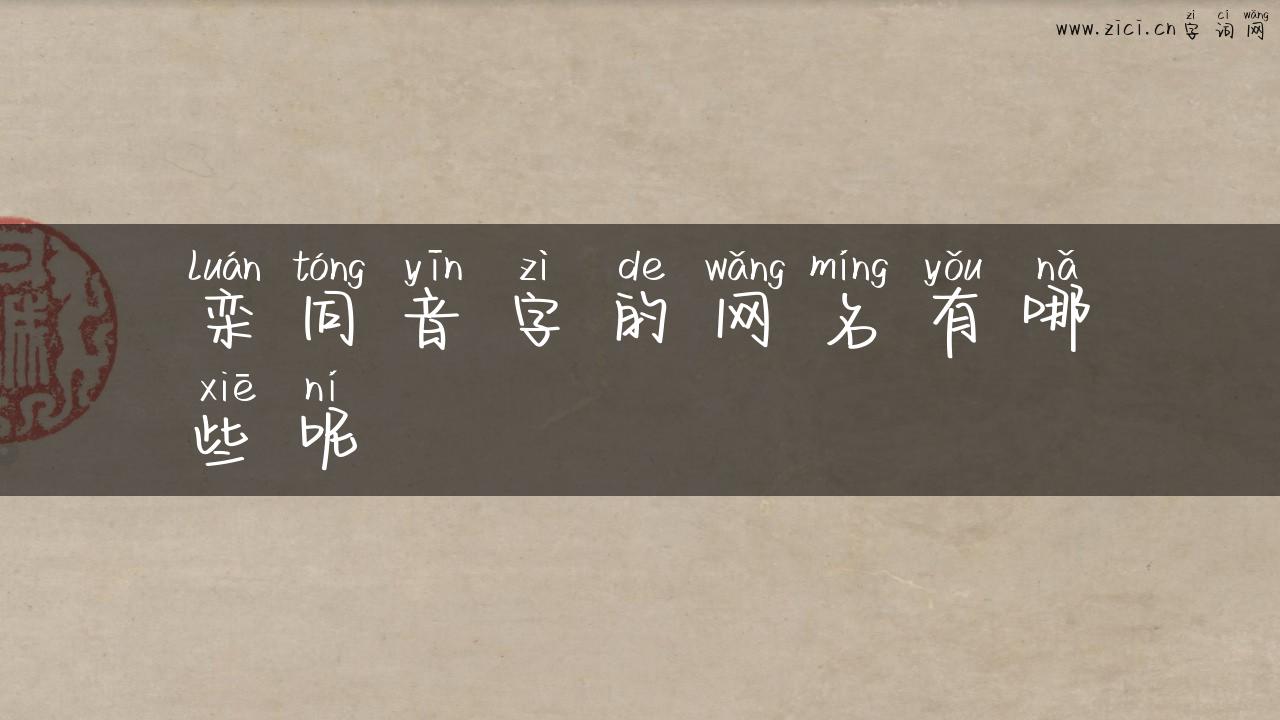 www.zici.cn zì cí wǎng
字词网
luán tóng yīn zì de wǎng míng yǒu nǎ
栾同音字的网名有哪
xiē ní
些呢